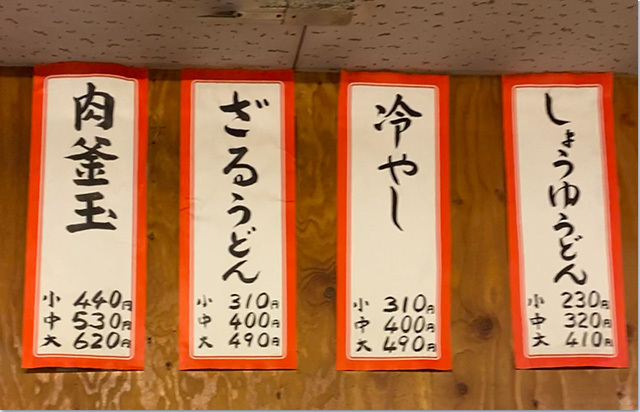 肉釜玉
小 440円
中 530円
大 620円
ざるうどん
小 310円
中 400円
大 490円
冷やし
小 310円
中 400円
大 490円
しょうゆうどん
小 230円
中 320円
大 410円